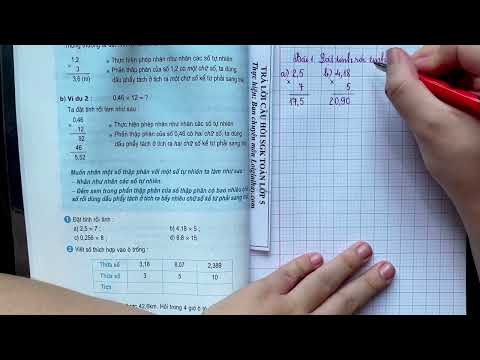 1,2
× 3
3,6 (m)
• Thực hiện phép nhân như nhân các số tự nhiên
• Phần thập phân của số 1,2 có một chữ số, ta dùng
dấu phẩy tách ở tích ra một chữ số kể từ phải sang trái
b) Ví dụ 2 : 0,46 × 12 = ?
Ta đặt tính rồi làm như sau :
0,46
× 12
92
46
5,52
• Thực hiện phép nhân như nhân các số tự nhiên
• Phần thập phân của số 0,46 có hai chữ số, ta dùng
dấu phẩy tách ở tích ra hai chữ số kể từ phải sang trái
Muốn nhân một số thập phân với một số tự nhiên ta làm như sau :
– Nhân như nhân các số tự nhiên
– Đếm xem trong phần thập phân của số thập phân có bao nhiêu chữ
số rồi dùng dấu phẩy tách ở tích ra bấy nhiêu chữ số kể từ phải sang trái
1 Đặt tính rồi tính :
a) 2,5 × 7 ; b) 4,18 × 5 ;
c) 0,256 × 8 ; d) 6,8 × 15.
2 Viết số thích hợp vào ô trống :
Thừa số 3,18 8,07 2,389
Thừa số 3 5 10
Tích
42,6km. Hỏi trong 4 giờ ô
TRẢ LỜI CÂU HỎI SGK TOÁN LỚP 5
Thực hiện: Ban chuyên môn Loigiaihay.com
Bài 1 Đặt tính rồi tính
a) 2,5 b) 4,18
× 7 × 5
17,5 20,90